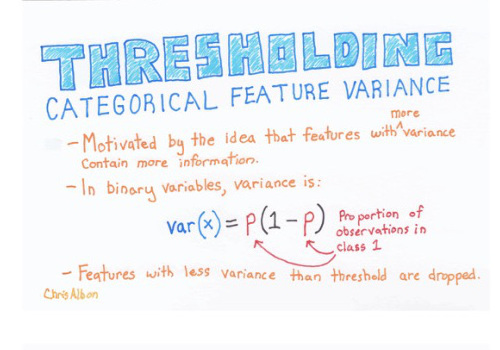 THRESHOLDING
CATEGORICAL FEATURE VARIANCE
- Motivated by the idea that features with more variance
Contain more information.
- In binary variables, variance is:
var(x) = p(1 - p)
Proportion of
observations in
class 1
- Features with less variance than threshold are dropped.
Chris Albon